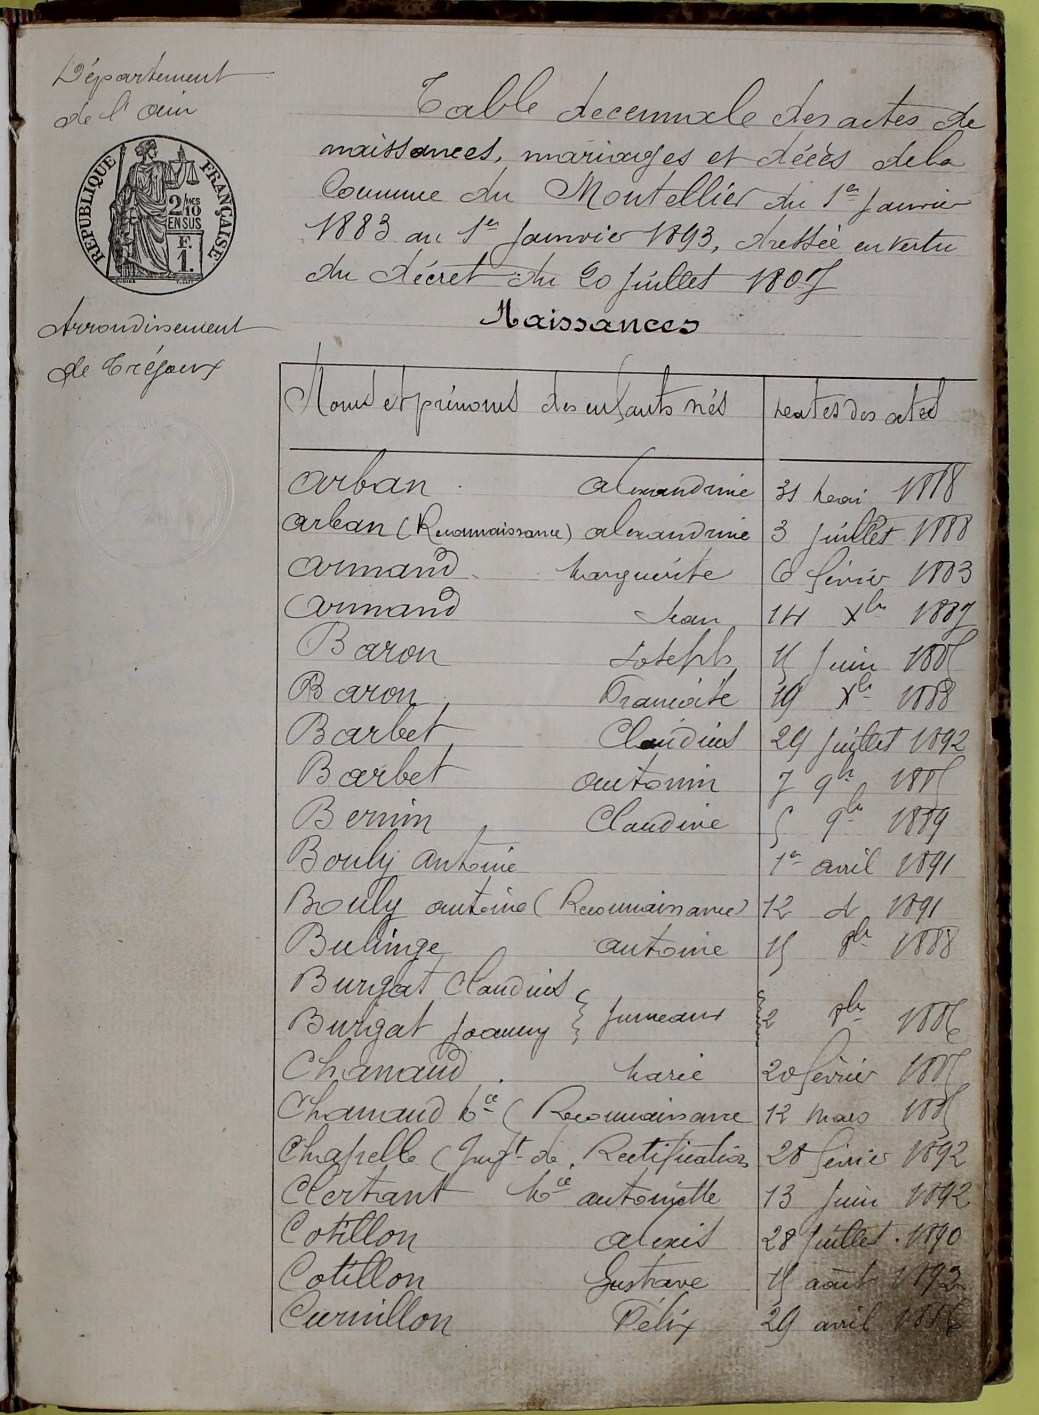 Département
de l'ain
RÉPUBLIQUE FRANÇAISE
2/10
EN SUS
F.
1.
Arrondissement
de Trévoux
Table decennale des actes de
naissances, mariages et décès de la
Commune du Montellier du 1er janvier
1883 au 1er janvier 1893, dressée en vertu
du décret du 20 juillet 1807
Naissances
Noms et prénoms des enfants nés Dates des actes
Arban alexandrine 31 mai 1888
Arban (Reconnaissance) alexandrine 3 juillet 1888
Armand Marguerite 6 février 1883
Armand Jean 14 Xbre 1887
Baron Joseph 15 juin 1885
Baron Françoise 19 Xbre 1888
Barbet Claudius 29 juillet 1892
Barbet antonin 7 9bre 1885
Bernin Claudine 5 9bre 1889
Bouly Antoine 1er avril 1891
Bouly antoine (Reconnaissance) 12 do 1891
Bulinge antoine 15 8bre 1888
Burgat Claudius
Burgat Joanny } jumeaux 2 8bre 1886
Chanaud Marie 20 février 1885
Chanaud Mce (Reconnaissance 12 mars 1885
Chapelle (Jugt de Rectification 28 février 1892
Clertant Mce antoinette 13 juin 1892
Cotillon alexis 28 juillet 1890
Cotillon Gustave 15 août 1892
Curnillon Félix 29 avril 1886